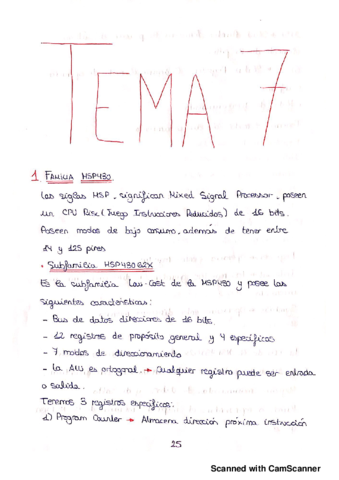 TEMA 7
1 FAMILIA MSP430
Las siglas MSP, significan Mixed Signal Processor, poseen
un CPU Risc (Juego Instrucciones Reducidos) de 16 bits.
Poseen modos de bajo consumo, además de tener entre
14 y 125 pines
• Subfamilia MSP430G2X
Es la subfamilia Low-Cost de la MSP430 y posee las
siguientes características:
- Bus de datos direcciones de 16 bits.
- 12 registros de propósito general y 4 específicos
- 7 modos de direccionamiento
- La ALU es ortogonal. → Cualquier registro puede ser entrada
o salida.
Tenemos 3 registros específicos:
1) Program Counter → Almacena dirección próxima instrucción
25
Scanned with CamScanner